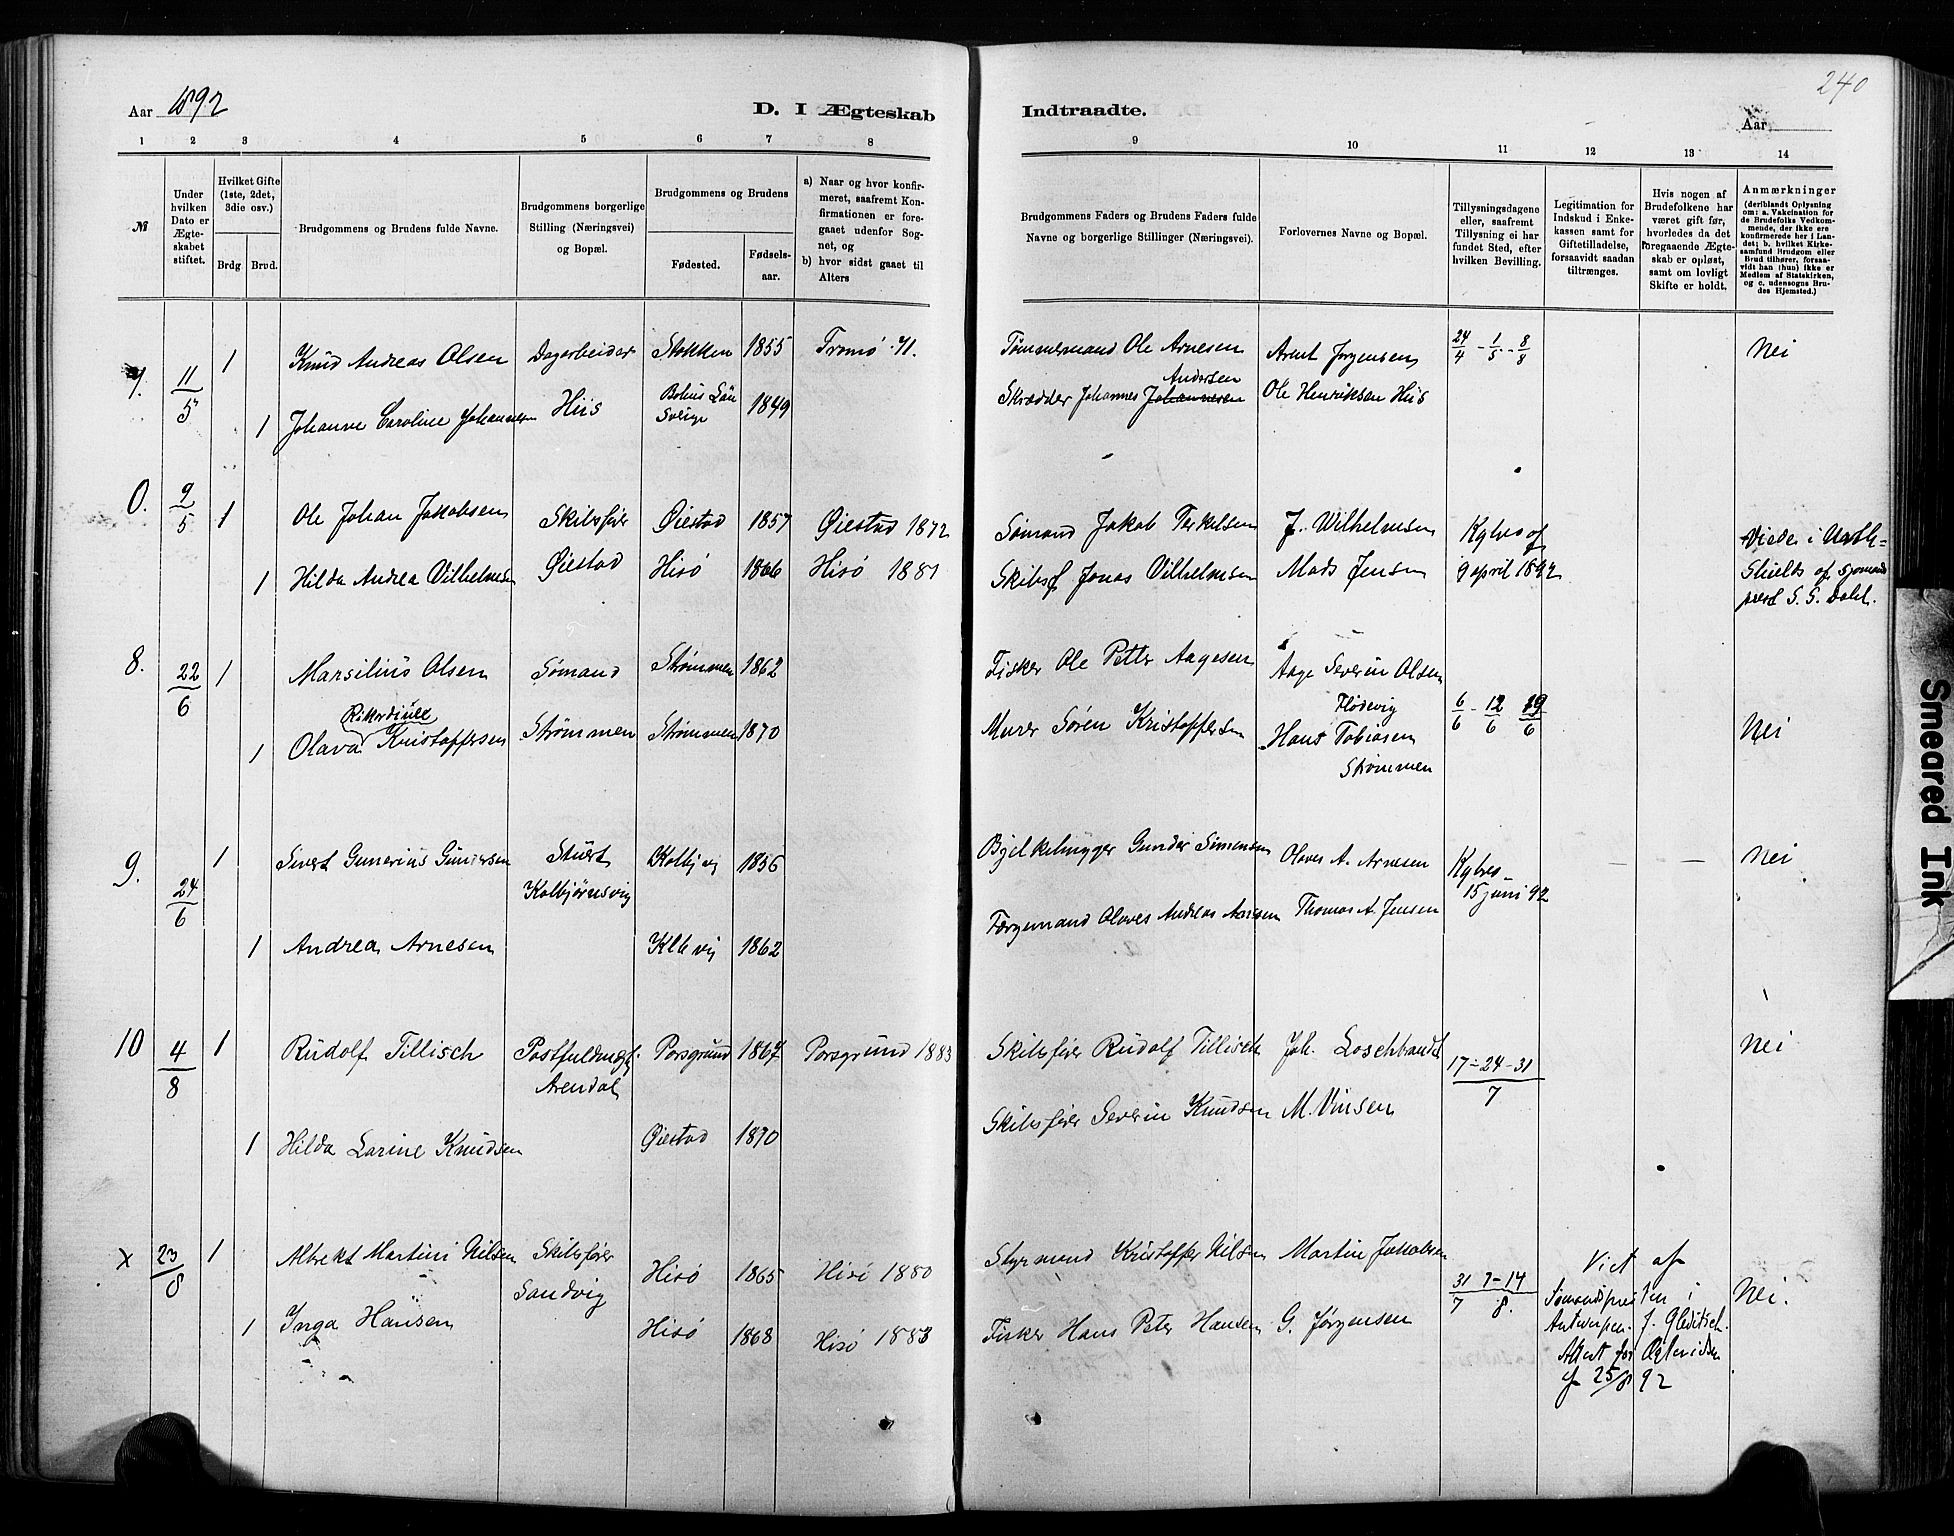 240
Aar 1892 D. I Ægteskab Indtraadte. Aar
1 2 3 4 5 6 7 8 9 10 11 12 13 14
№
Under hvilken Dato er Ægteskabet stiftet.
Hvilket Gifte (1ste, 2det, 3die osv.)
Brdg Brud.
Brudgommens og Brudens fulde Navne.
Brudgommens borgerlige Stilling (Næringsvei) og Bopæl.
Brudgommens og Brudens
Fødested.
Fødsels-aar.
a) Naar og hvor konfirmeret, saafremt Konfirmationen er foregaaet udenfor Sognet, og
b) hvor sidst gaaet til Alters
Brudgommens Faders og Brudens Faders fulde Navne og borgerlige Stillinger (Næringsvei).
Forlovernes Navne og Bopæl.
Tillysningsdagene eller, saafremt Tillysning ei har fundet Sted, efter hvilken Bevilling.
Legitimation for Indskud i Enkekassen samt for Giftetilladelse, forsaavidt saadan tiltrænges.
Hvis nogen af Brudefolkene har været gift før, hvorledes da det foregaaende Ægteskab er opløst, samt om lovligt Skifte er holdt.
Anmærkninger (deriblandt Oplysning om: a. Vakcination for de Brudefolks Vedkommende, der ikke ere konfirmerede her i Landet; b. hvilket Kirkesamfund Brudgom eller Brud tilhører, forsaavidt han (hun) ikke er Medlem af Statskirken, og c. udensogns Brudes Hjemsted.)
7. 11/5 1 Knud Andreas Olsen Dagarbeider Stokken 1855 Tromø 71. Tømmermand Ole Arnesen Arent Jørgensen 24/4 - 1/5 - 8/8 Nei
1 Johanne Caroline Johannesen Hiis Bohus Län Sverige 1849 Skrædder Johannes Johannesen Andersen Ole Henriksen Hiis
0. 9/5 1 Ole Johan Jakobsen Skibsfører Øiestad 1857 Øiestad 1872 Sømand Jakob Terkelsen J. Wilhelmsen Kgbrev af Viede i North-
1 Hilda Andrea Vilhelmsen Øiestad Hisø 1866 Hisø 1881 Skibsf. Jonas Vilhelmsen Mads Jensen 9 april 1892 Shields af sjomands
prest S. S. Dahl.
8. 22/6 1 Marsilius Olsen Sømand Strømmen 1862 Fisker Ole Petter Aagesen Aage Severin Olsen
Flødevig
1 Olava Rikardine Kristoffersen Strømmen Strømmen 1870 Murer Søren Kristoffersen Hans Tobiasen 6/6 - 12/6 19/6 Nei
Strømmen
9. 24/6 1 Sivert Gunerius Gundersen Stuert Kolbj vig 1856 Gunder Simonsen Oloves A. Arnesen Kgbrev — — Nei
Kolbjørnsvig 15 juni 92
1 Andrea Arnesen Klb vig 1862 Færgemand Oloves Andreas Arnesen Thomas A. Jensen
10 4/8 1 Rudolf Tillisch Postfuldmægtig Porsgrund 1867 Porsgrund 1883 Skibsfører Rudolf Tillisch Joh. Loschbrandt 17-24-31/7 Nei
Arendal
1 Hilda Larine Knudsen Øiestad 1870 Skibsfører Severin Knudsen M. Vinsen
x 23/8 1 Albrekt Martini Nilsen Skibsfører Hisø 1865 Hisø 1880 Styrmand Kristoffer Nilsen Martin Jakobsen 31/7 7-14/8. Viet af Nei.
Sandvig Sømandspresten i
1 Inga Hansen Hisø 1868 Hisø 1883 Fisker Hans Peter Hansen G. Jørgensen Antwerpen. J. Gleditsch.
Attest for Ægtevielsen
af 25/8 92
Smeared Ink